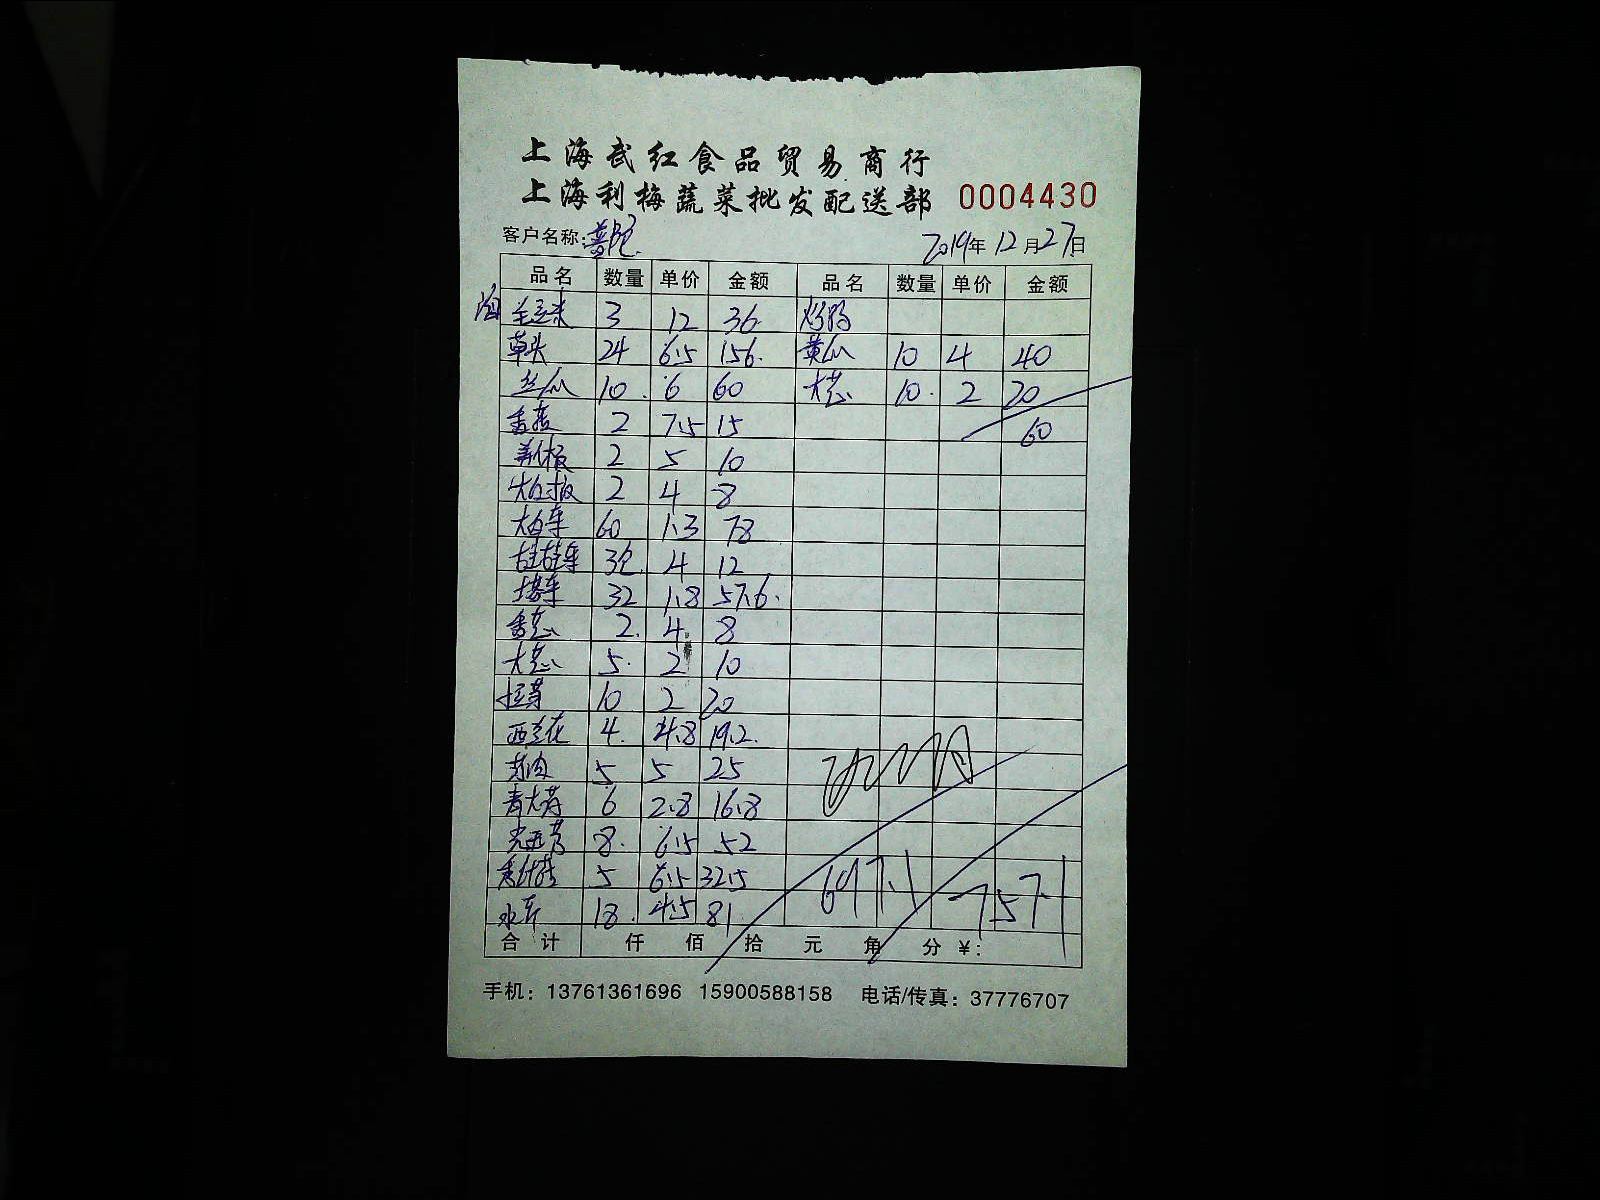 上海武红食品贸易商行
上海利梅蔬菜批发配送部 0004430
客户名称: 普陀 2019年12月27日
品名 数量 单价 金额 品名 数量 单价 金额
毛豆米 3 12 36
草头 24 6.5 156 黄瓜 10 4 40
丝瓜 10 6 60 大葱 10 2 20
香菜 2 7.5 15 60
2 5 10
2 4 8
大白菜 60 1.3 78
娃娃菜 3包 4 12
塔菜 32 1.8 57.6
香葱 2 4 8
大葱 5 2 10
10 2 20
西兰花 4 4.8 19.2
5 5 25
6 2.8 16.8
8 6.5 52
5 6.5 32.5 697.1 757.1
水芹 18 4.5 81
合计 仟 佰 拾 元 角 分 ¥:
手机: 13761361696 15900588158 电话/传真: 37776707